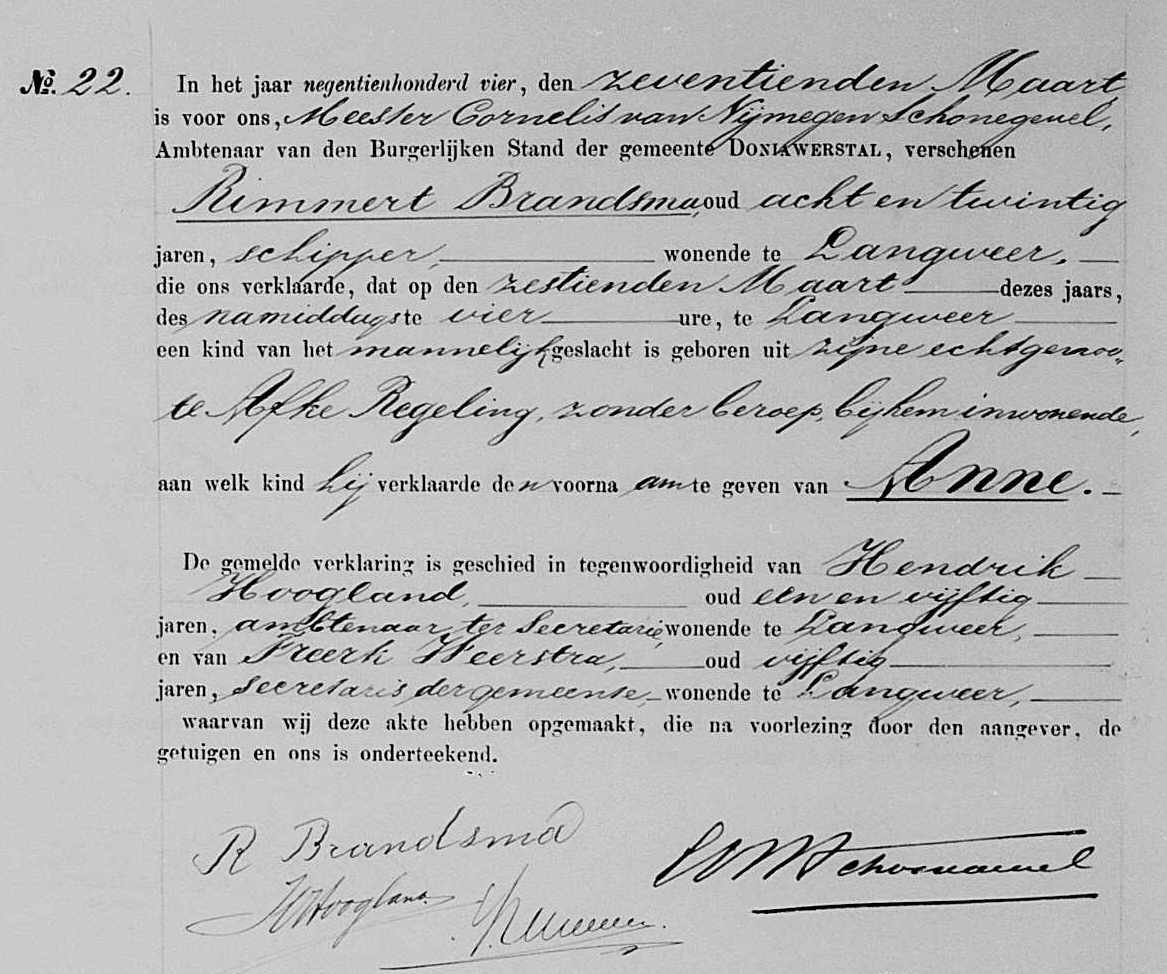 No. 22.
In het jaar negentienhonderd vier, den zeventienden Maart
is voor ons, Meester Cornelis van Nijmegen Schonegevel,
Ambtenaar van den Burgerlijken Stand der gemeente DONIAWERSTAL, verschenen
Rimmert Brandsma, oud acht en twintig
jaren, schipper, wonende te Langweer,
die ons verklaarde, dat op den zestienden Maart dezes jaars,
des namiddags te vier ure, te Langweer
een kind van het mannelijk geslacht is geboren uit zijne echtgenoo„
te Afke Regeling, zonder beroep, bij hem inwonende,
aan welk kind hij verklaarde den voornaam te geven van Anne.
De gemelde verklaring is geschied in tegenwoordigheid van Hendrik
Hoogland, oud een en vijftig
jaren, ambtenaar ter Secretarie, wonende te Langweer,
en van Freerk Weerstra, oud vijftig
jaren, Secretaris der gemeente, wonende te Langweer,
waarvan wij deze akte hebben opgemaakt, die na voorlezing door den aangever, de
getuigen en ons is onderteekend.
R Brandsma
H Hoogland